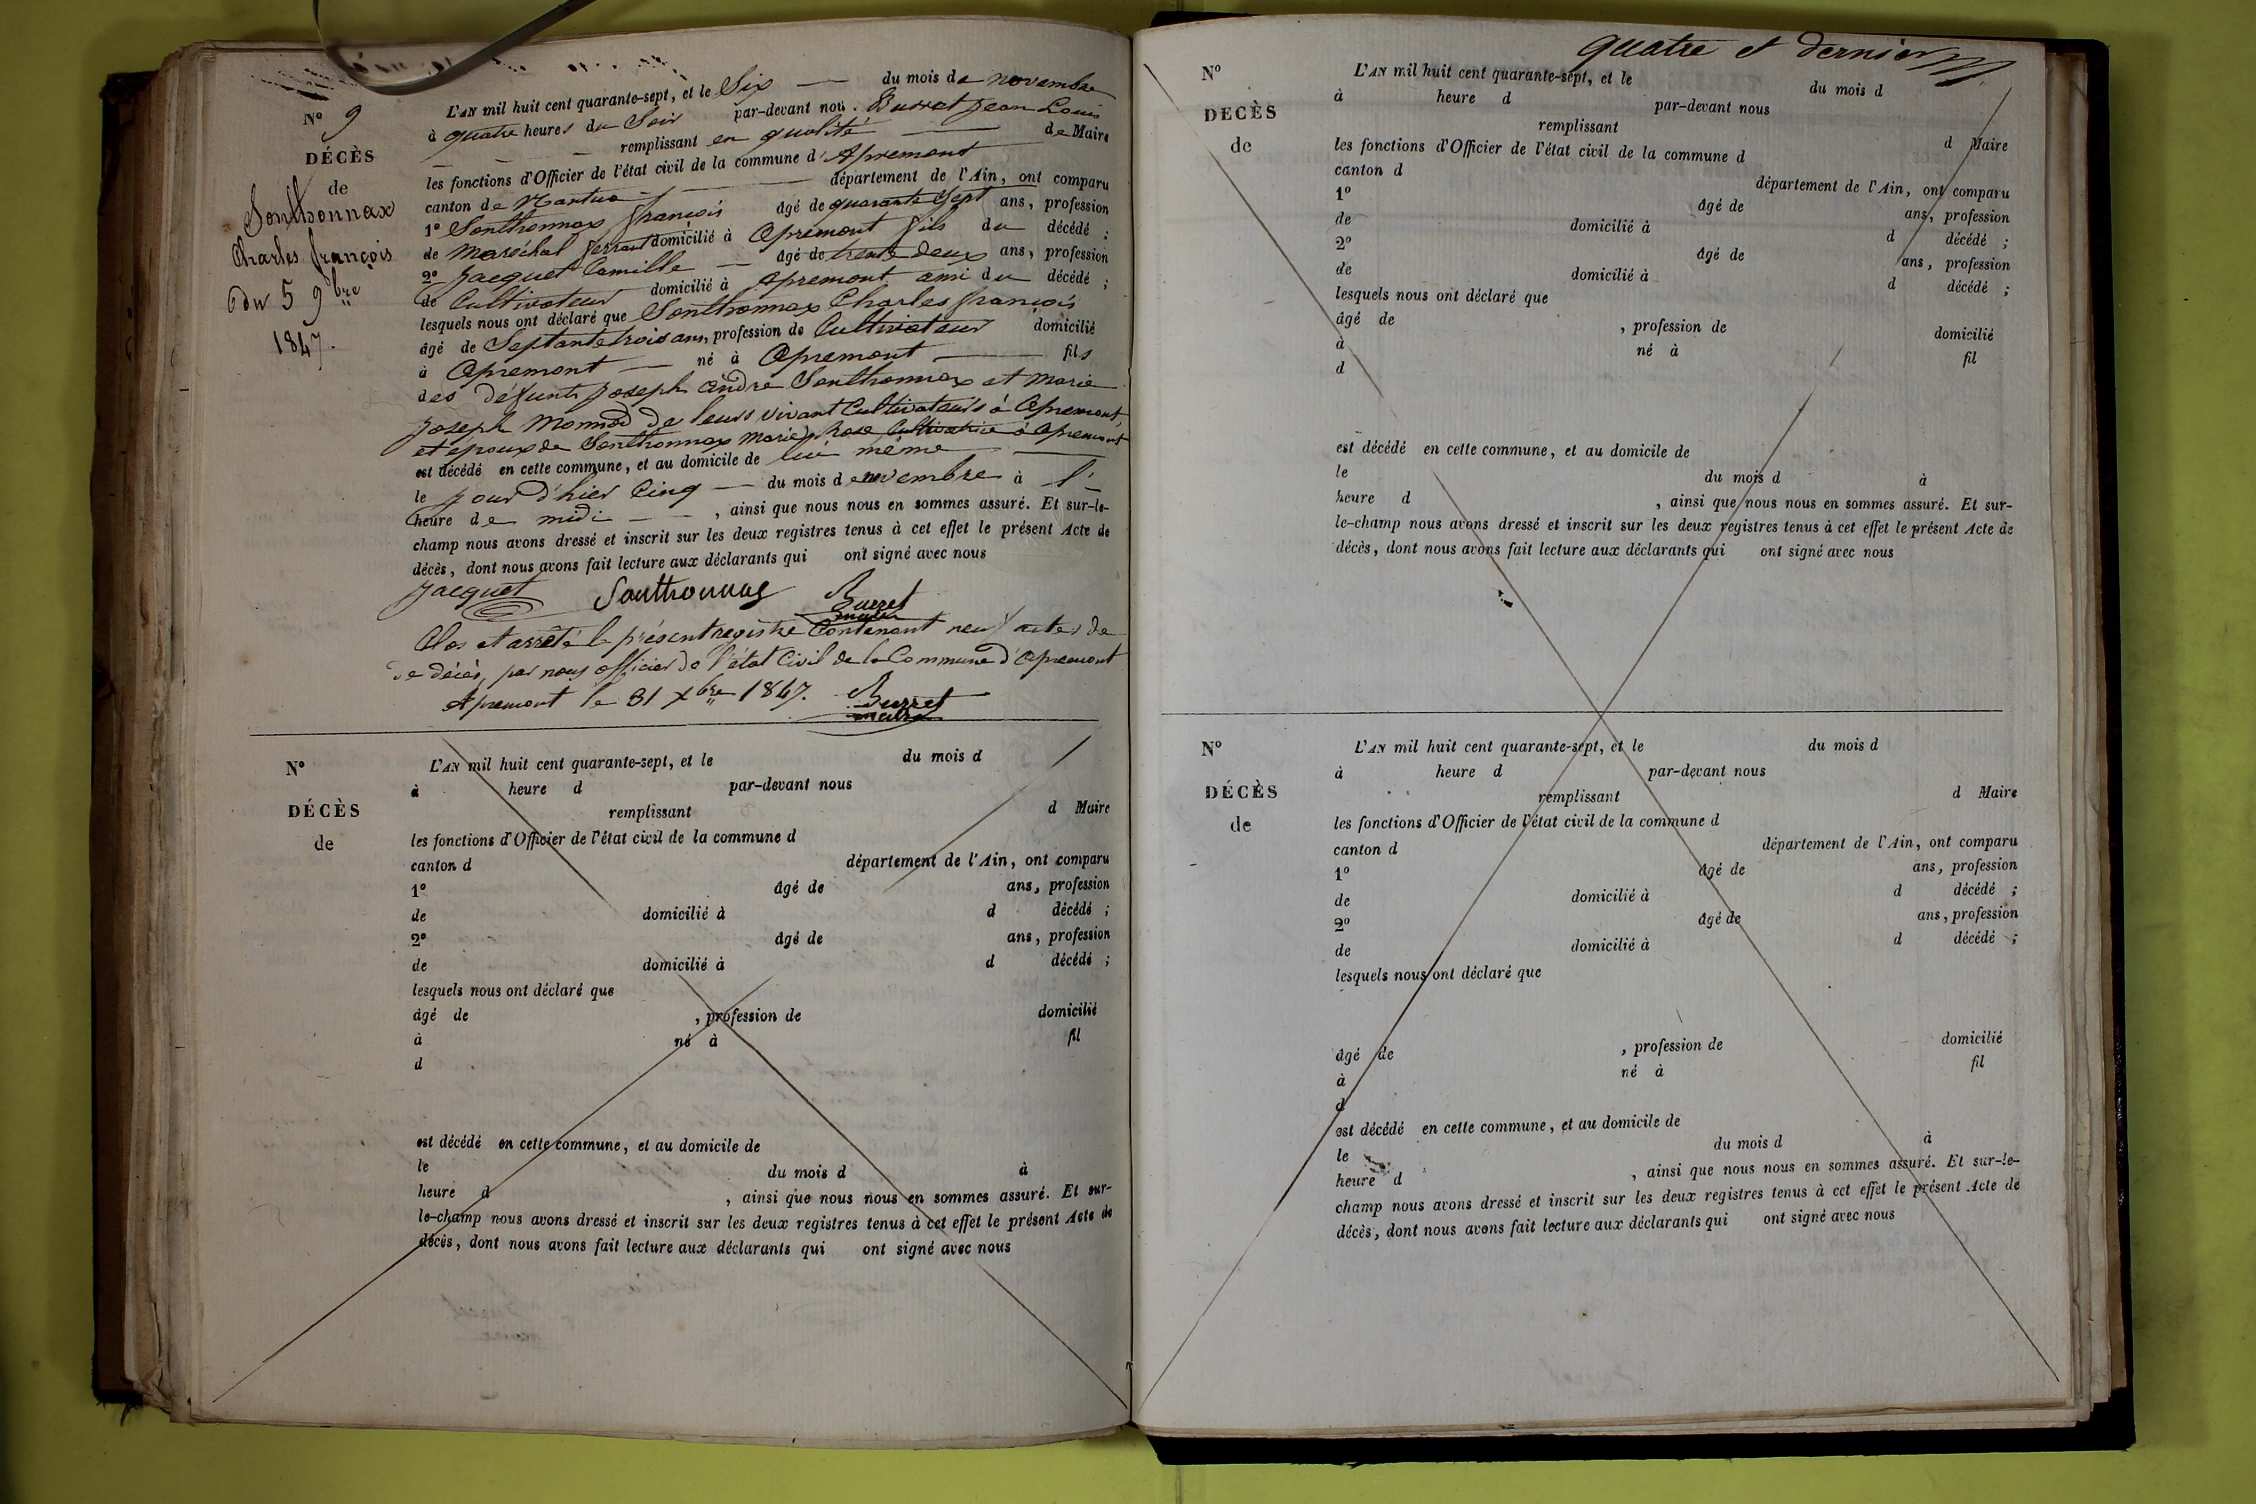 N° 9
DÉCÈS
de
Sonthonnax
Charles françois
Du 5 9bre
1847.
L'AN mil huit cent quarante-sept, et le Six du mois de novembre
à quatre heures du Soir par-devant nous Burret Jean Louis
remplissant en qualité de Maire
les fonctions d'Officier de l'état civil de la commune d'Apremont
canton de Nantua département de l'Ain, ont comparu
1° Sonthonnax françois âgé de quarante Sept ans, profession
de Maréchal ferrant domicilié à Apremont fils du décédé ;
2° Jacquet Camille âgé de trente deux ans, profession
de Cultivateur domicilié à Apremont ami du décédé ;
lesquels nous ont déclaré que Sonthonnax Charles françois
âgé de Septante trois ans, profession de Cultivateur domicilié
à Apremont né à Apremont fils
des défunts Joseph andré Sonthonnax et Marie
Joseph Monnod de leurs vivant Cultivateurs à Apremont,
et époux de Sonthonnax Marie Rose Cultivatrice à Apremont
est décédé en cette commune, et au domicile de lui même
le jour d'hier Cinq du mois de novembre à l'
heure de midi , ainsi que nous nous en sommes assuré. Et sur-le-
champ nous avons dressé et inscrit sur les deux registres tenus à cet effet le présent Acte de
décès, dont nous avons fait lecture aux déclarants qui ont signé avec nous
Jacquet Sonthonnax Burret
maire
Clos et arrêté le présent registre Contenant neuf actes de
de décès, par nous officier de l'état Civil de la Commune d'Apremont
Apremont le 31 xbre 1847. Burret
maire
N°
DÉCÈS
de
L'AN mil huit cent quarante-sept, et le du mois d
à heure d par-devant nous
remplissant d Maire
les fonctions d'Officier de l'état civil de la commune d
canton d département de l'Ain, ont comparu
1° âgé de ans, profession
de domicilié à d décédé ;
2° âgé de ans, profession
de domicilié à d décédé ;
lesquels nous ont déclaré que
âgé de , profession de domicilié
à né à fil
d
est décédé en cette commune, et au domicile de
le du mois d à
heure d , ainsi que nous nous en sommes assuré. Et sur-
le-champ nous avons dressé et inscrit sur les deux registres tenus à cet effet le présent Acte de
décès, dont nous avons fait lecture aux déclarants qui ont signé avec nous
quatre et dernier
N°
DECÈS
de
L'AN mil huit cent quarante-sept, et le du mois d
à heure d par-devant nous
remplissant d Maire
les fonctions d'Officier de l'état civil de la commune d
canton d département de l'Ain, ont comparu
1° âgé de ans, profession
de domicilié à d décédé ;
2° âgé de ans, profession
de domicilié à d décédé ;
lesquels nous ont déclaré que
âgé de , profession de domicilié
à né à fil
d
est décédé en cette commune, et au domicile de
le du mois d à
heure d , ainsi que nous nous en sommes assuré. Et sur-
le-champ nous avons dressé et inscrit sur les deux registres tenus à cet effet le présent Acte de
décès, dont nous avons fait lecture aux déclarants qui ont signé avec nous
N°
DÉCÈS
de
L'AN mil huit cent quarante-sept, et le du mois d
à heure d par-devant nous
remplissant d Maire
les fonctions d'Officier de l'état civil de la commune d
canton d département de l'Ain, ont comparu
1° âgé de ans, profession
de domicilié à d décédé ;
2° âgé de ans, profession
de domicilié à d décédé ;
lesquels nous ont déclaré que
âgé de , profession de domicilié
à né à fil
d
est décédé en cette commune, et au domicile de
le du mois d à
heure d , ainsi que nous nous en sommes assuré. Et sur-le-
champ nous avons dressé et inscrit sur les deux registres tenus à cet effet le présent Acte de
décès, dont nous avons fait lecture aux déclarants qui ont signé avec nous